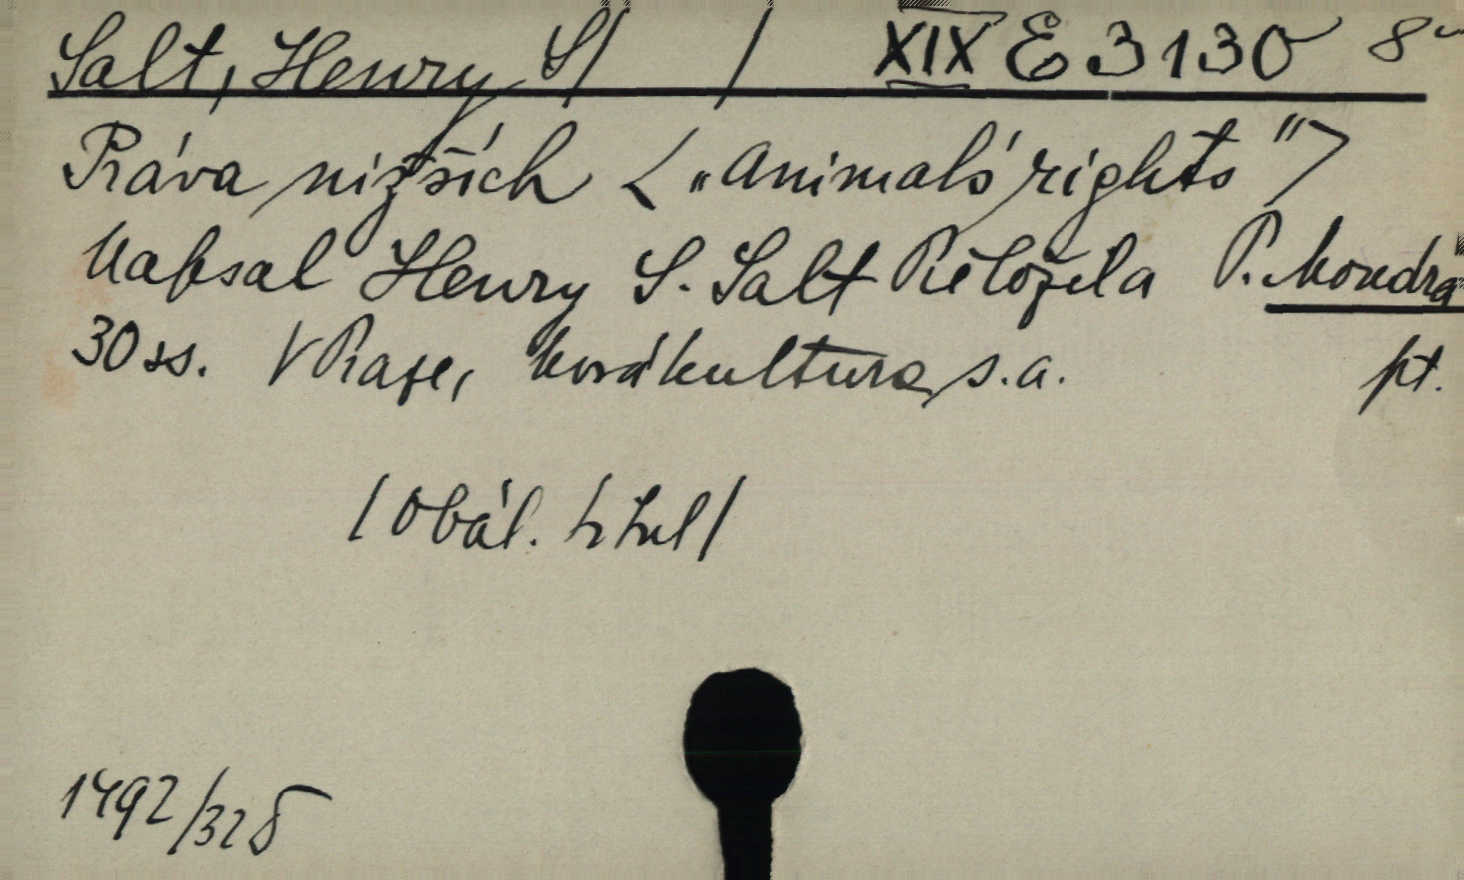 Salt, Henry S/ / XIX E 3130 8°
Práva nižších <„Animals' rights">
Napsal Henry S. Salt Přeložila P. Moudrá
30 ss. V Praze, Nová kultura, s.a. pt.
/Obál. titul/
1492/325